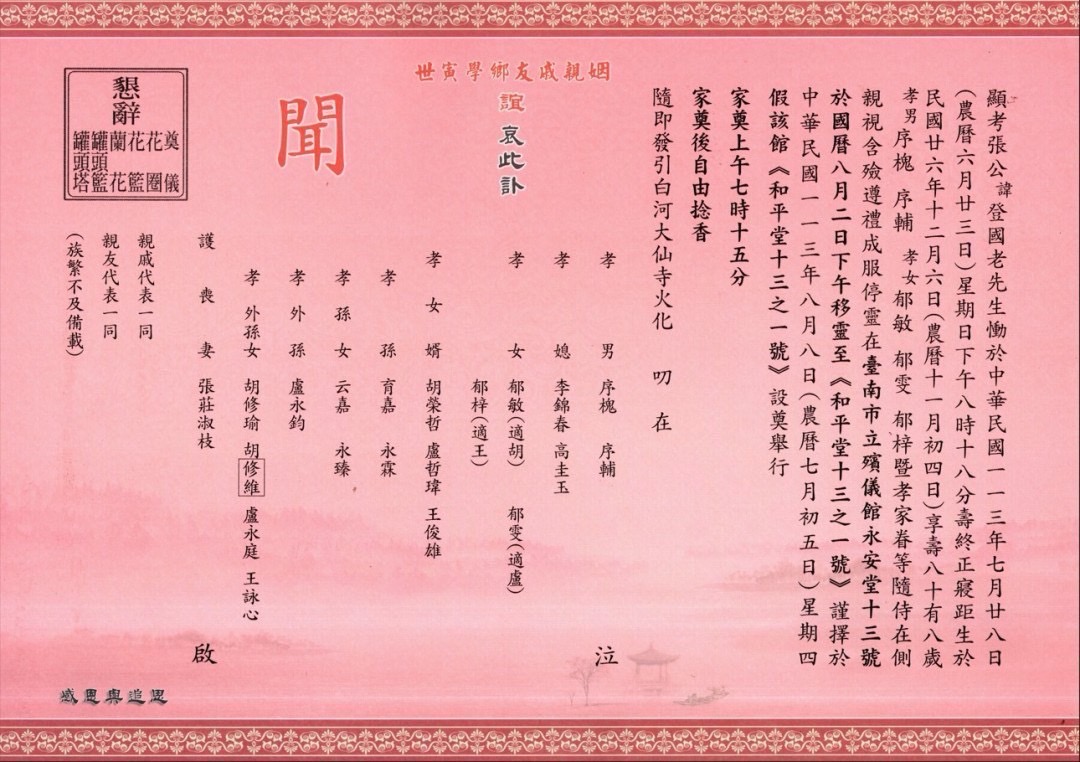 顯考張公諱登國老先生慟於中華民國一一三年七月廿八日
(農曆六月廿三日)星期日下午八時十八分壽終正寢距生於
民國廿六年十二月六日(農曆十一月初四日)享壽八十有八歲
孝男序槐 序輔 孝女郁敏 郁雯 郁梓暨孝家眷等隨侍在側
親視含殮遵禮成服停靈在臺南市立殯儀館永安堂十三號
於國曆八月二日下午移靈至《和平堂十三之一號》謹擇於
中華民國一一三年八月八日(農曆七月初五日)星期四
假該館《和平堂十三之一號》設奠舉行
家奠上午七時十五分
家奠後自由捻香
隨即發引白河大仙寺火化 叨在
姻親戚友鄉學寅世
誼哀此訃
聞
孝男 序槐 序輔
孝媳 李錦春 高圭玉
孝女 郁敏(適胡) 郁雯(適盧)
郁梓(適王)
孝女婿 胡榮哲 盧哲瑋 王俊雄
孝孫 育嘉 永霖
孝孫女 云嘉 永臻
孝外孫 盧永鈞
孝外孫女 胡修瑜 胡修維 盧永庭 王詠心
護喪妻 張莊淑枝
泣
啟
親戚代表一同
親友代表一同
(族繁不及備載)
懇辭
奠儀
花圈
花籃
蘭花
罐頭籃
罐頭塔
感恩與追思